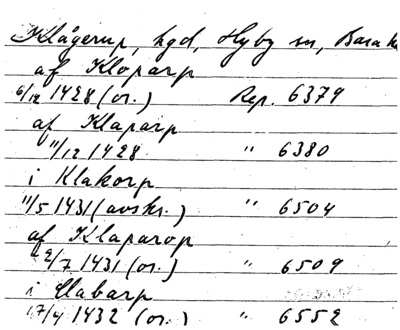 Klågerup, hgd, Hyby sn, Bara h
af Kloparp
6/12 1428 (or.) Rep. 6379
af Klaparp
11/12 1428 " 6380
i Klakorp
11/5 1431 (avskr.) " 6504
af Klaparop
2/7 1431 (or.) " 6509
i Clabarp
17/4 1432 (or.) " 6552